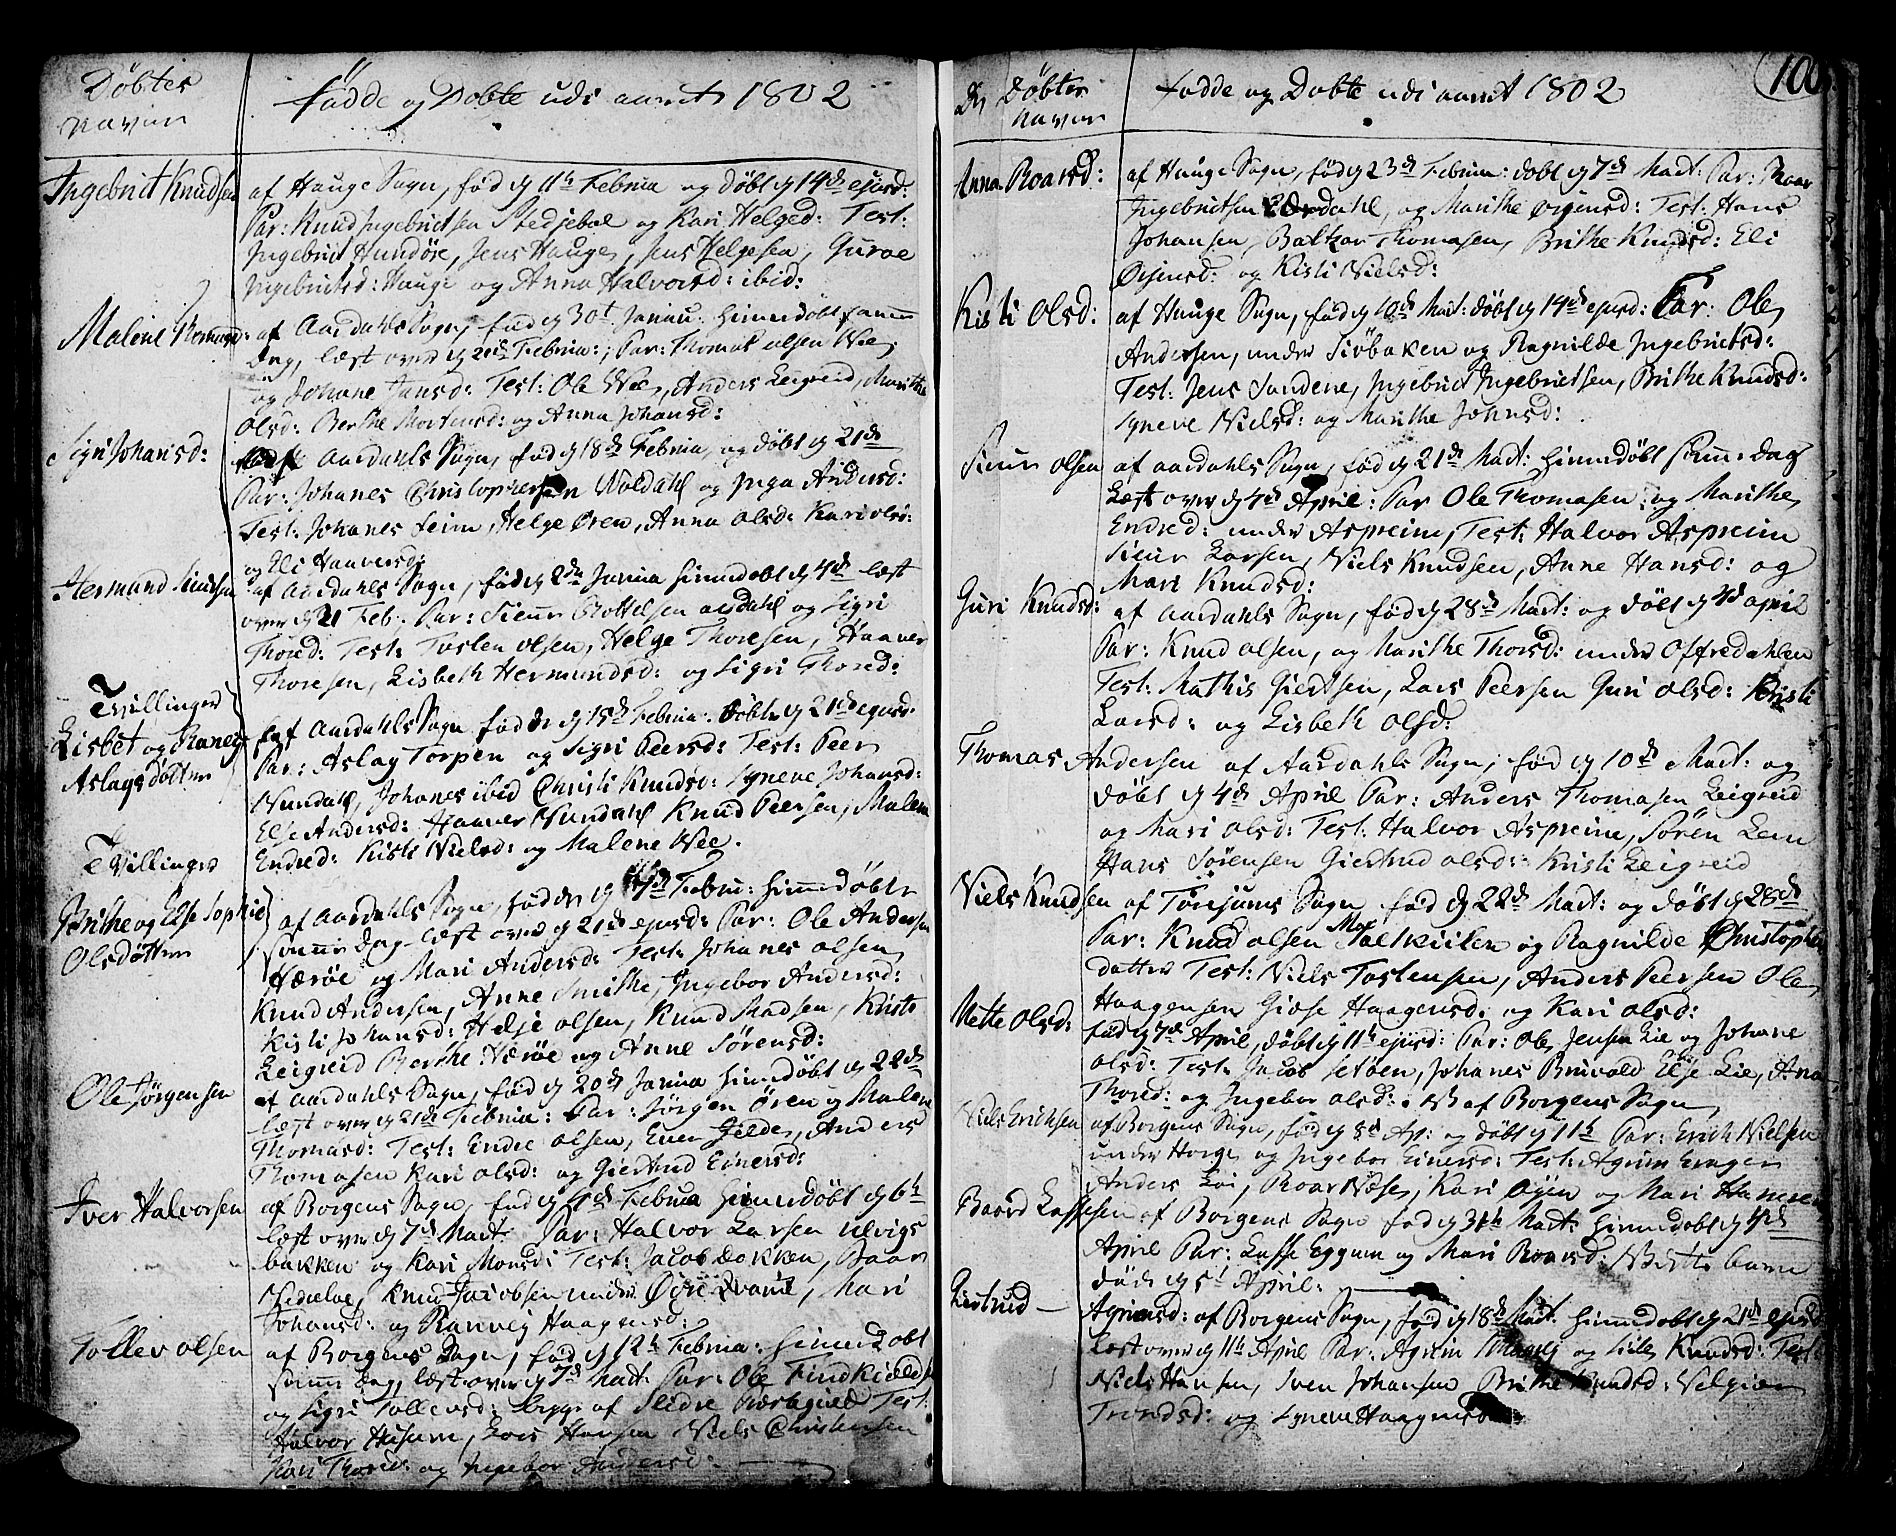 Døbtes
Navne
Fødde og Døbte udi aaret 1802
Ingebrict Knudsen
af Hauge Sogn, fød d 11te Februa og døbt d 14de ejusd:
Par: Knud Ingebrictsen Stedjebal og Kari Helged: Test:
Ingebrict Hundøre, Jens Hauge, Jens Helgesen, Guroe
Ingebrictsd: Hauge og Anna Halvorsd: ibid:
Malene Thomasd:
af Aardahls Sogn, fød d 30t Janua: hiemmedøbt samme
dag, læst over d 21de Februa: Par: Thomas Olsen Wee
og Johane Jansd: Test: Ole Wee, Anders Leigreid, Marithe
Olsd: Berthe Mortensd: og Anna Johansd:
Sigri Johansd:
af Aardahls Sogn, fød d 18de Februa, og døbt d 21de
Par: Johanes Christophersen Woldahl og Inga Andersd:
Test: Johanes Leim, Helge Øren, Anna Olsd: Kari Olsd:
og Eli Haaversd:
Hermund
af Aardahls Sogn, fød d 2den Janua hiemmedøbt d 4de læst
over d 21 Feb. Par: Siver Bottelsen Aardahl og Sigri
Thored: Test: Tosten Olsen, Helge Thoresen, Haaver
Thoresen, Lisbeth Hermundsd: og Sigri Thored:
Tvillinger
Lisbet og Raneig
Aslagsdøttre
af Aardahls Sogn fødde d 15de Februa: døbte d 21de ejusd.
Par: Aslag Torpen og Sigri Peersd: Test: Peer
Nundahl, Johanes ibid Christi Knudsd: Synneve Johansd:
Else Andersd: Haaver Nundahl Knud Peersen, Malene
Endred: Kisti Nielsd: og Malene Wee.
Tvillinger
Brithe og Else Sophie
Olsdøttre
af Aardahls Sogn, fødde d 17de Februa: hiemmedøbte
samme Dag læst over d 21de ejusd: Par: Ole Andersen
Hærøe og Mari Andersd: Test: Johanes Olsen
Knud Andersen, Anne Smithe, Ingebor Andersd:
Kisti Johansd: Helje Olsen, Knud Madsen, Kristi
Leigreid Berthe Hærøe og Anne Sørensd:
Ole Jørgensen
af Aardahls Sogn, fød d 20de Janua hiemmedøbt d 22de
læst over d 21de Februa: Par: Jørgen Øren og Malene
Thomasd: Test: Endre Olsen, Ener Gilde, Anders
Thomasen Kari Olsd: og Giertrud Einersd:
Iver Halvorsen
af Borgens Sogn, fød d 4de Februa hiemmedøbt d 6te
læst over d 7de Mart Par: Halvor Larsen Ulvigs
bakken og Kari Monsd: Test: Jacob Bakken, Baar
Nedrelve, Knud Jacobsen under Øvre Qvame, Mari
Johansd: og Ranveig Haagensd:
Tollev Olsen
af Borgens Sogn, fød d 12te Februa: hiemmedøbt
samme dag, læst over d 7de Mart Par: Ole
og Sigri Tollevsd: begge af Slidre Præstegield Test:
Halvor Husum, Lars Hansen Niels Christensen
Kari Thored: og Ingebor Andersd:
100
De Døbtes
Navne
Fødde og Døbte udi aaret 1802
Anna Roarsd:
af Hauge Sogn, fød d 23de Februa: døbt d 7de Mart: Par: Roar
Ingebrictsen og Marithe Orjensd: Test: Hans
Johansen, Baltzar Thomasen, Brithe Knudsd: Eli
Orjensd. og Kisti Nielsd:
Kisti Olsd:
af Hauge Sogn, fød d 10de Mart: døbt d 14de ejusd: Par: Ole
Andersen, under Siøbaken og Ragnilde Ingebrictsd:
Test: Jens Sandene, Ingebrict Ingebrictsen, Brithe Knudsd:
Synneve Nielsd: og Marithe Johnsd:
Siver Olsen
af Aardahls Sogn, fød d 21de Mart: hiemmedøbt samme dag
Læst over d 4de April: Par Ole Thomasen: og Marithe
Endred: under Aspreim, Test: Halvor Aspreim
Siver Larsen, Niels Knudsen, Anne Hansd: og
Mari Knudsd:
Guri Knudsd:
af Aardahls Sogn, fød d 28de Mart: og døbt d 4de April
Par: Knud Olsen, og Marithe Thorsd: under Offredahlen
Test: Mathis Giertsen, Lars Peersen Guri Olsd: Kristi
Larsd: og Lisbeth Olsd:
Thomas Andersen af Aardahls Sogn, fød d 10de Mart: og
døbt d 4de April Par: Anders Thomasen Leigreid
og Mari Olsd: Test: Halvor Aspreim, Søren Lem
Hans Sørensen Giertrud Olsd: Kristi Leigreid
Niels Knudsen af Tønjums Sogn fød d 22de Mart: og døbt d 28de
Par: Knud Olsen og Ragnilde Christophers
datter Test: Niels Tostensen, Anders Peersen Ole
Haagensen Giøse Haagensd: og Kari Olsd:
Mette Olsd:
fød d 7de April, døbt d 11te ejusd: Par: Ole Jensen Lie og Johane
Olsd: Test: Jacob Setøen, Johanes Bruvold Else Lie, Ana
Thored: og Ingebor Olsd: NB af Borgens Sogn
Niels Erichsen
af Borgens Sogn, fød d 8de Ap: og døbt d 11te Par: Erich Nielsen
under Horge og Ingebor Einersd: Test: Agrim
Anders Loi, Roar Næse, Kari Øyen og Mari
Baard Lassesen af Borgens Sogn fød d 31te Mart: hiemmedøbt d 4de
April Par: Lasse Eggum og Mari Roarsd: NB dette barn
døde d 5t April:
Giertrud —
Agrimsd: af Borgens Sogn, fød d 18de Mart. hiemmedøbt d 21de ejusd
læst over d 11te April Par: Agrim og Knudsd: Test:
Niels Hansen, Sven Johansen Brithe Knudsd:
Trondsd: og Synneve Haagensd: